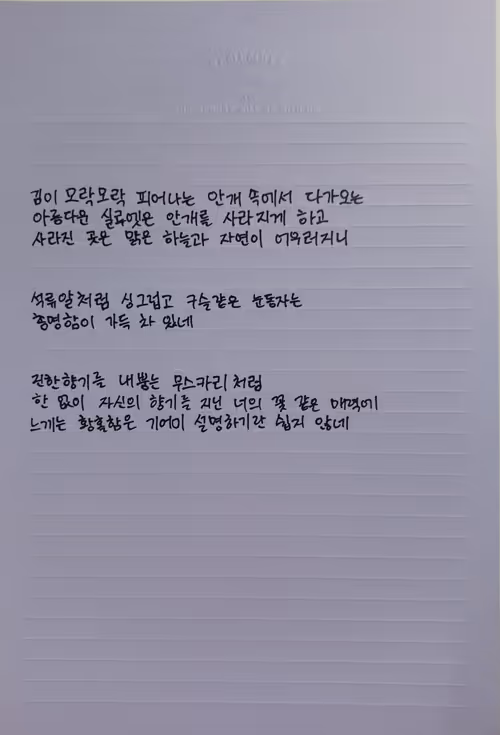 김이 모락모락 피어나는 안개 속에서 다가오는
아름다운 실루엣은 안개를 사라지게 하고
사라진 곳은 맑은 하늘과 자연이 어우러지니
석류알처럼 싱그럽고 구슬같은 눈동자는
총명함이 가득 차 있네
진한향기를 내뿜는 무스카리처럼
한 없이 자신의 향기를 지닌 너의 꽃 같은 매력에
느끼는 황홀함은 기어이 설명하기란 쉽지 않네